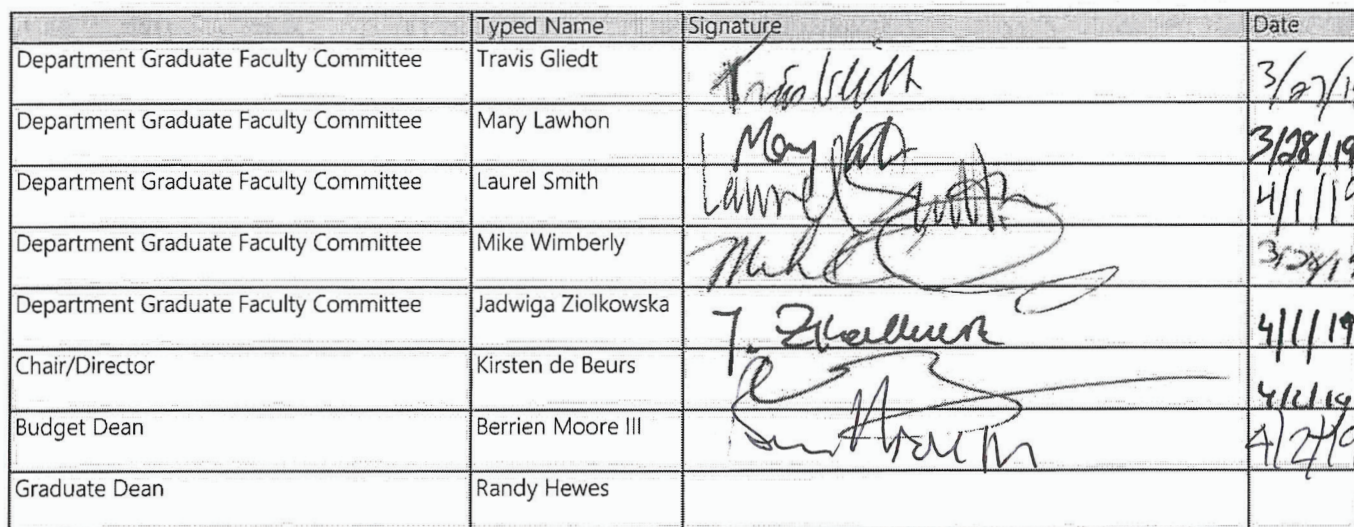 Typed Name Signature Date
Department Graduate Faculty Committee Travis Gliedt 3/27/1
Department Graduate Faculty Committee Mary Lawhon 3/28/19
Department Graduate Faculty Committee Laurel Smith Laurel Smith 4/1/19
Department Graduate Faculty Committee Mike Wimberly Mike 3/28/19
Department Graduate Faculty Committee Jadwiga Ziolkowska 4/1/19
Chair/Director Kirsten de Beurs
Budget Dean Berrien Moore III 4/2/19
Graduate Dean Randy Hewes